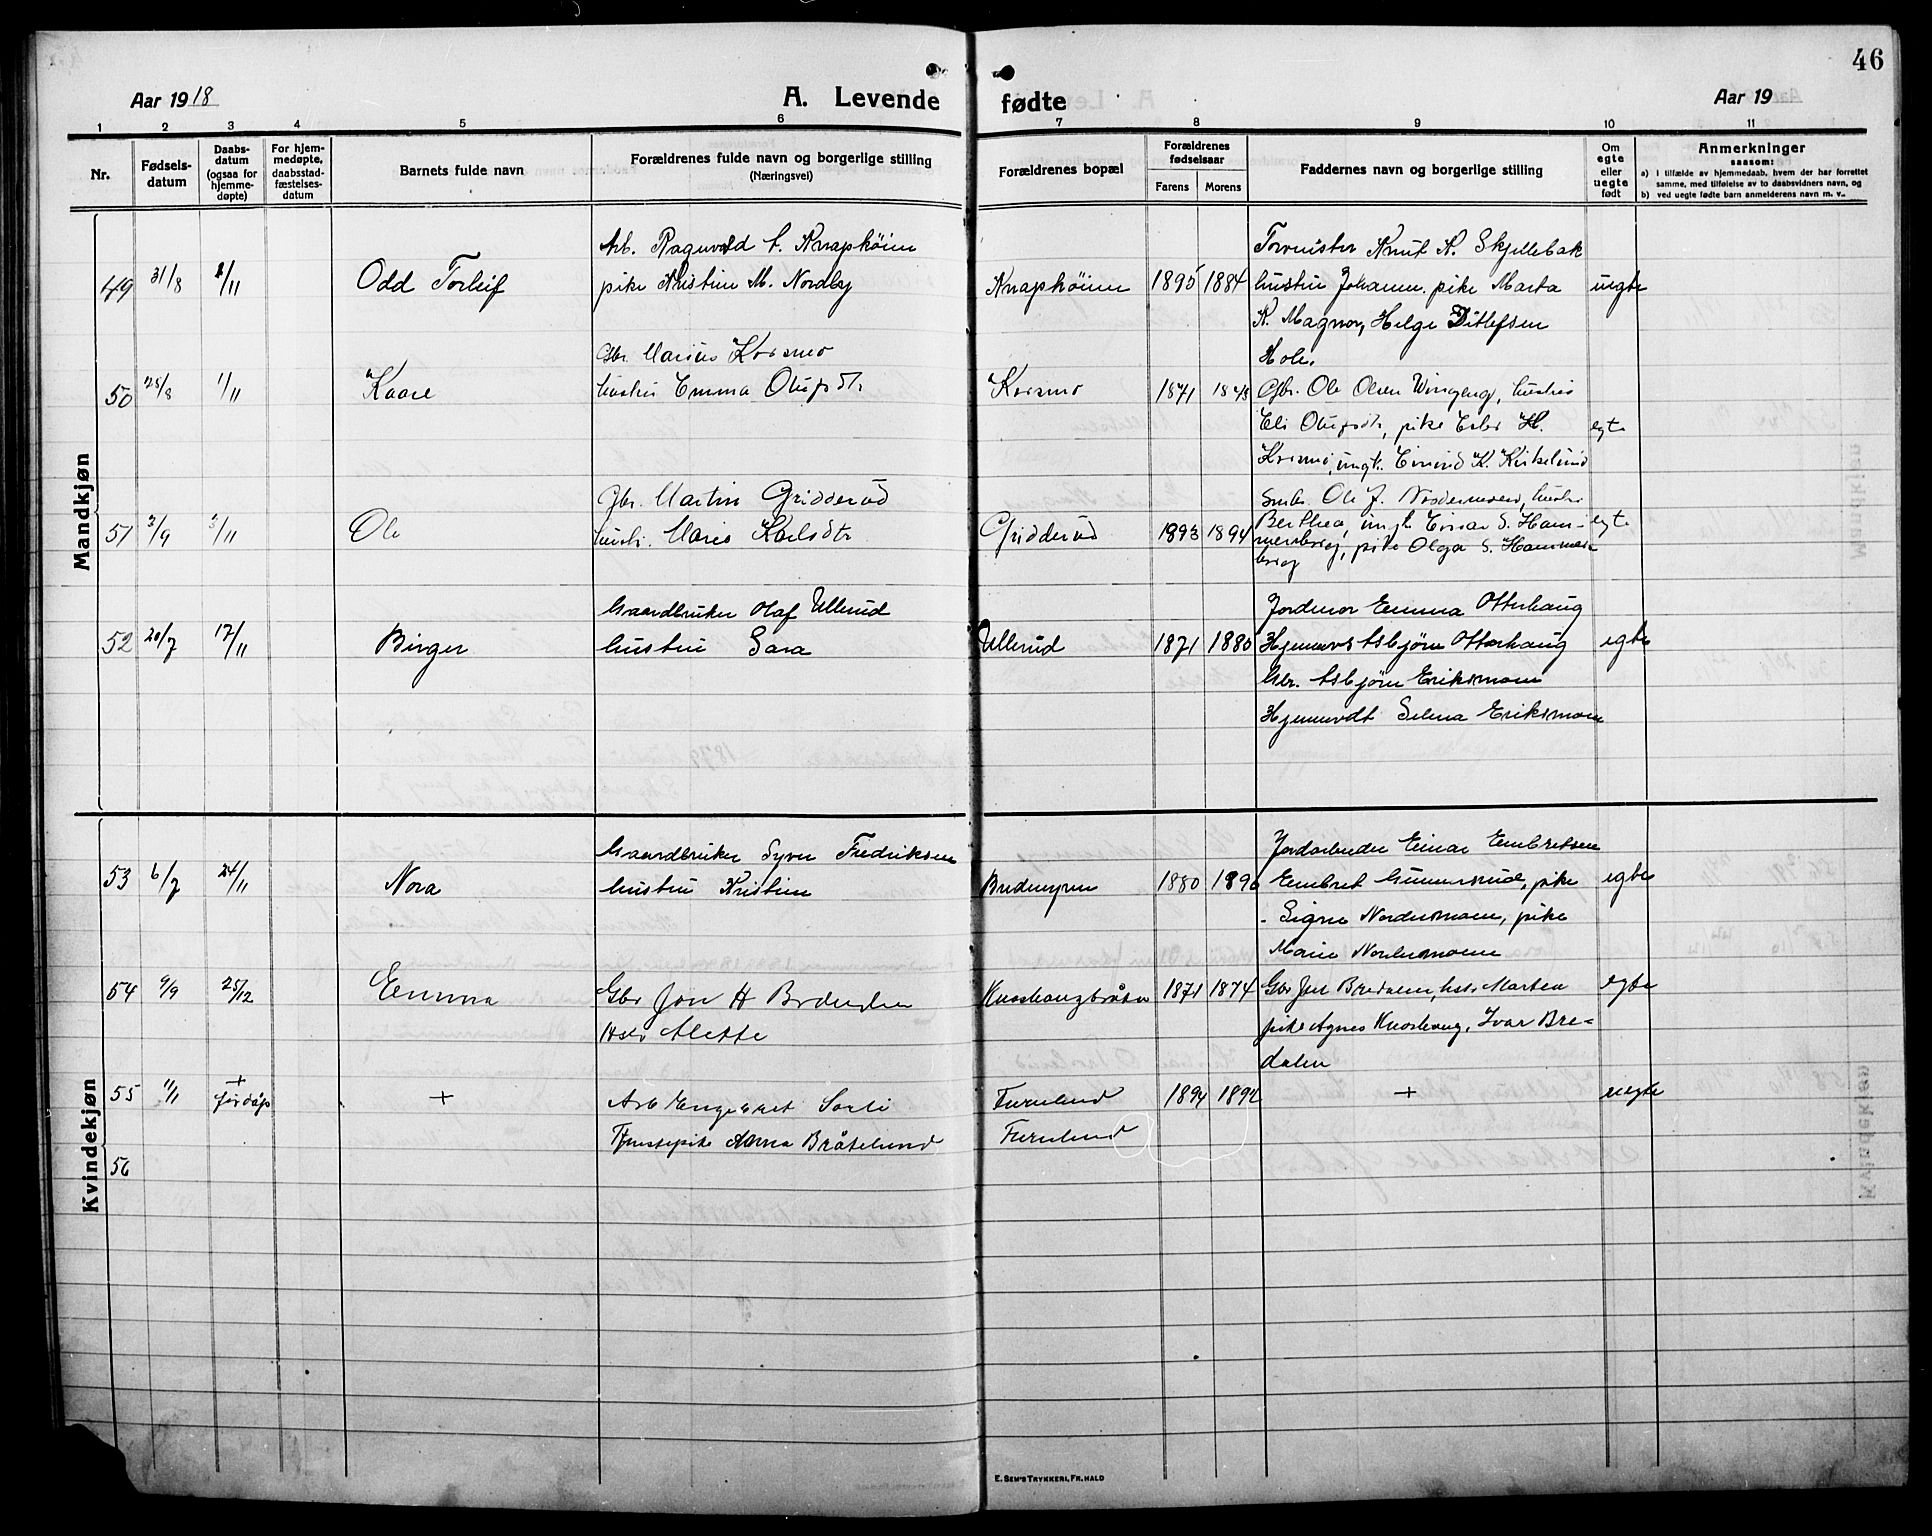 46
Aar 1918
A. Levende
fødte
Aar 19
1 2 3 4 5 6 7 8 9 10 11
Nr.
Fødsels-
datum
Daabs-
datum
(ogsaa for
hjemme-
døpte)
For hjem-
medøpte,
daabsstad-
fæstelses-
datum
Barnets fulde navn
Forældrenes fulde navn og borgerlige stilling
(Næringsvei)
Forældrenes bopæl
Forældrenes
fødselsaar
Farens Morens
Faddernes navn og borgerlige stilling
Om
egte
eller
uegte
født
Anmerkninger
saasom:
a) I tilfælde av hjemmedaab, hvem der har forrettet
samme, med tilføielse av to daabsvidners navn, og
b) ved uegte fødte barn anmelderens navn m. v.
Mandkjøn
49 31/8 /11 Odd Torleif
Arb. Ragnvald A. Knaphøien
pike Kristine M. Nordby
Knaphøien 1895 1884
Knut K. Skjellebæk
hustru Johanne. pike Marta
K. Magnor, Helge Ditlefsen
Hole.
uegte
50 25/8 1/11 Kaare
Gbr. Marius Korsmo
hustru Emma Olufsdtr.
Korsmo 1871
Gbr. Ole Olsen Wingeng, hustru
Eli Olufsdtr, pike Ester H.
Korsmo, ungk. K. Kirkelund
egte
51 3/9 3/11 Ole
Gbr. Martin Gridderud
hustr. Marie Karlsdtr
Gridderud 1893 1894
Smbr Ole J. Nordermoen, hustru
Berthea, ungk Einar S. Ham-
mersborg, pike Olga S. Hammers-
borg
egte
52 20/7 17/11 Birger
Gaardbruker Olaf Ullerud
hustru Sara
Ullerud 1871 1880
Jordmor Emma Otterhaug
Hjemmevs Asbjørn Otterhaug
Gbr. Asbjørn Eriksmoen
Hjemmevdt Selma Eriksmoen
egte
Kvindekjøn
53 6/7 24/11 Nora
Gaardbruker Syver Fredriksen
hustru Kristine
1880 1896
Jordarbeider Einar Embretsen
Embret Gunnersrud, pike
Signe Nordermoen, pike
Marie Nordermoen
egte
54 9/9 25/12 Emma
Gbr Jon H Bredalen
Hstr Alette
1871 1874
Gbr Bredalen, hstr Martea
pike Agnes Knoshaug, Ivar Bre-
dalen
egte
55 1/1 + +
Arb Engebret Sorli
Tjenestepike Anna Bråtelund
Furulund
Furulund
1894 1892
+
uegte
56
E. Sem's Trykkeri, Fr.hald